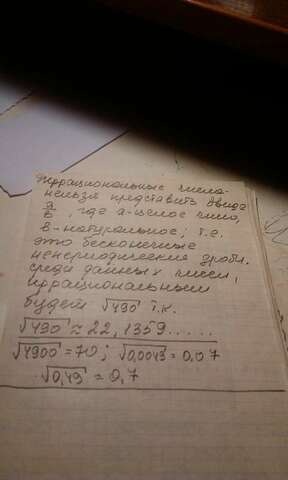 Иррациональные числа-
нельзя представить ввиде
a/b, где а-целое число,
в-натуральное; т.е.
это бесконечные
непериодические дроби.
среди данных чисел,
иррациональным
будет √490 т.к.
√490 ≈ 22,1359.....
√4900 = 70; √0,0049 = 0,07
√0,49 = 0,7